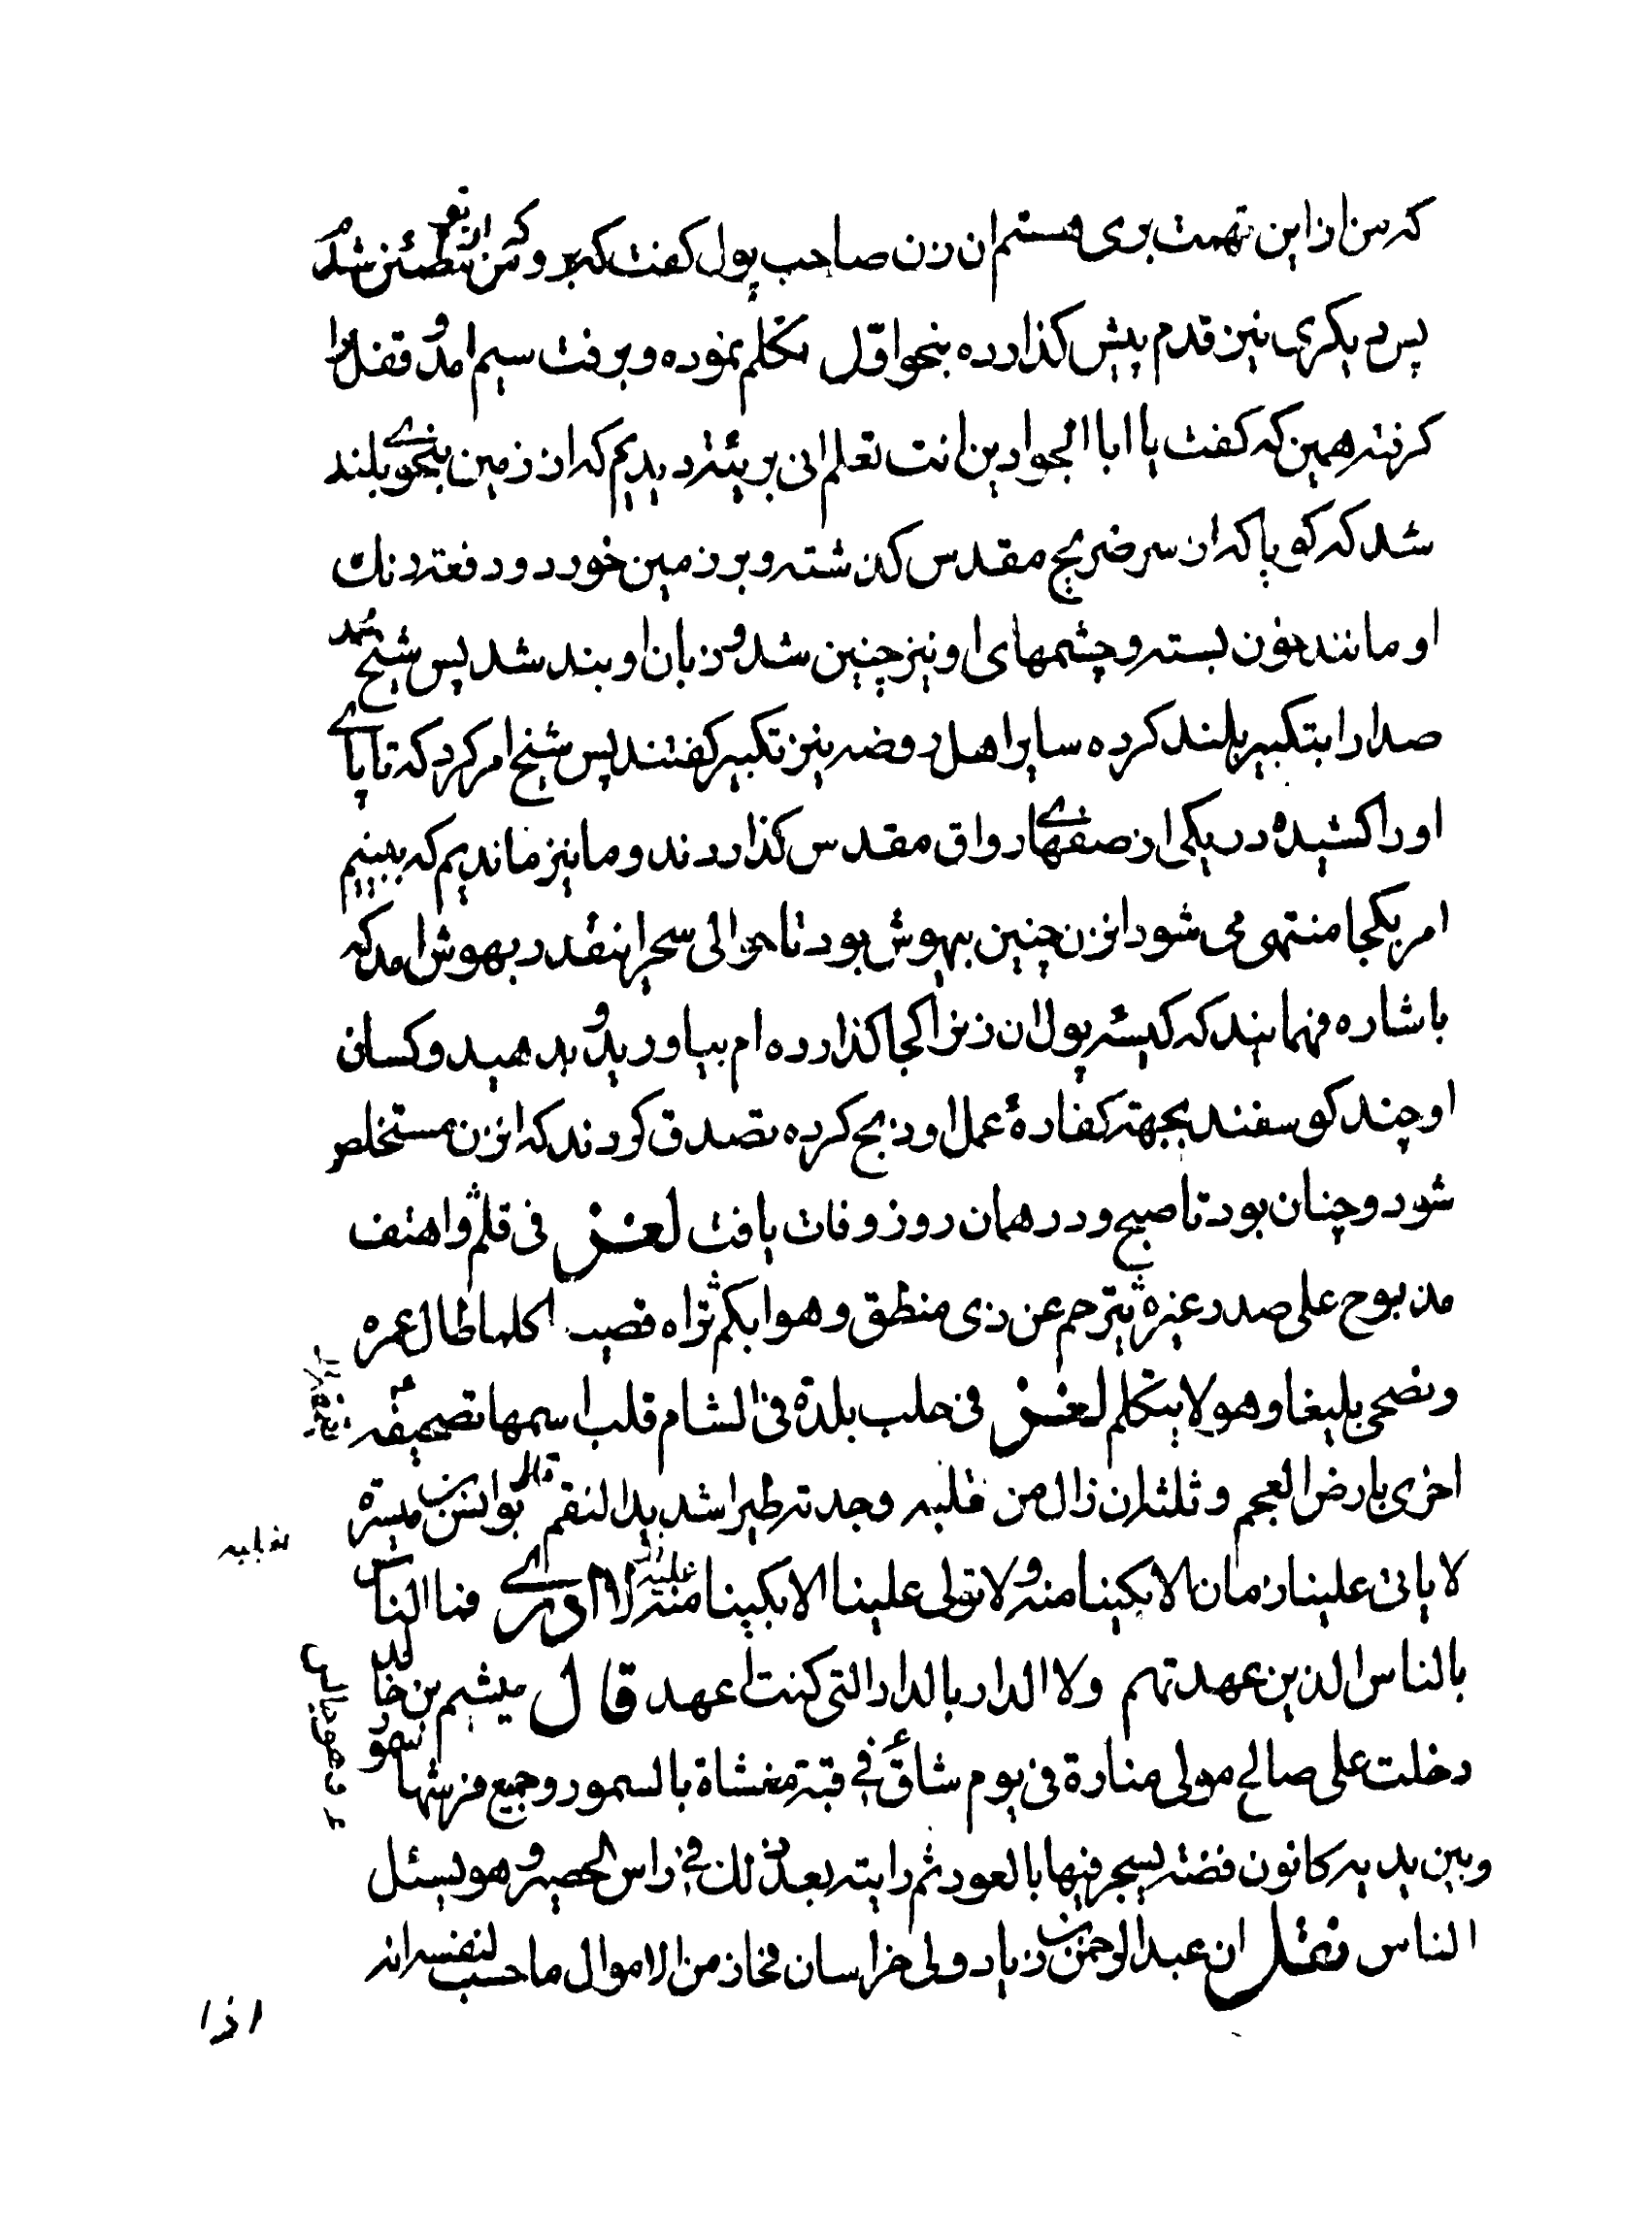 که من از این تهمت بری هستم ان زن صاحب پول کفت که برو که من از تو مطمئن شدم
پس دیکری نیز قدم پیش کذارده بنحو اوّل تکلم نموده و برفت سیم امد و قفل را
کرفته همین که کفت یا ابا الجوادین انت تعلم انی بریئة دیدیم که از زمین بنحوی بلند
شد که کویا که از سر ضریح مقدس کذشته و بر زمین خورد و دفعة رنك
او مانند خون بسته و چشمهای او نیز چنین شد و زبان او بند شد پس شیخ محمد
صدا را بتکبیر بلند کرده سایر اهل روضه نیز تکبیر کفتند پس شیخ امر کرد که تا پای
او را کشیده در یکی از صفهای رواق مقدس کذاردند و ما نیز ماندیم که ببینیم
امر بکجا منتهی می شود انزن چنین بیهوش بود تا حوالی سحر اینقدر بهوش امد که
باشاره فهمانید که کیسۀ پول ان زنرا کجا کذارده ام بیاورید و بدهید و کسان
او چند کوسفند بجهة کفارۀ عمل او ذبح کرده تصدق کردند که انزن مستخلص
شود و چنان بود تا صبح و در همان روز وفات یافت لغز فی قلم واهتف
مذبوح علی صدر غیره یترجم عن ذی منطق وهو ابکم تراه قصیرا کلما طال عمره
ویضحی بلیغا وهو لا یتکلم لغز فی حلب بلدة فی الشام قلب اسمها تصحیفه
اخری بارض العجم وثلثه ان زال من قلبه وجدته طیرا شدید النقم قال یونس بن میسرة
لا یاتی علینا زمان الا بکینا منه ولا تولی علینا الا بکینا علیه لا ادری فما الناس
بالناس الذین عهدتهم ولا الدار بالدار التی کنت اعهد قال میثم بن خالد
دخلت علی صالح مولی منارة فی یوم شاق فی قبة مغشاة بالسمور وجمیع فرشها سمور
وبین یدیه کانون فضة یسجر فیها بالعود ثم رایته بعد ذلك فی راس الجسر وهو یسئل
الناس نقل ان عبد الرحمن بن زیاد ولی خراسان فحاز من الاموال ما حسب لنفسه انه
اذا